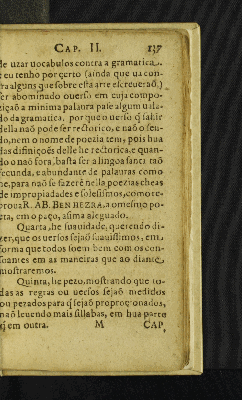 CAP. II. 137
de uzar uocabulos contra a gramatica.
E eu tenho por çerto (ainda que ua con-
tra alguns que sobre esta arte escreueraõ.)
ser abominado ouerso em cuja compo-
ziçaõ a minima palaura pase algum uala-
do da gramatica, por que o uerso q̃ sahir
della naõ pode ser rectorico, e naõ o sen-
do, nem o nome de poezia tem, pois hua
das difiniçoẽs delle he rectorica, e quan-
do o naõ fora, basta ser a lingoa santi tão
fecunda, e abundante de palauras como
he, para naõ se fazerẽ nella poezias cheas
de impropiadades e solesismos, como re-
proua R. AB. BEN HEZRA, a o mesmo po-
eta, em o paço, asima aleguado.
Quarta, he suauidade, querendo di-
zer, que os uersos sejaõ suauissimos, em
forma que todos soem bem com os con-
soantes em as maneiras que ao diante
mostraremos.
Quinta, he pezo, mostrando que to-
das as regras ou uersos sejaõ medidos
ou pezados para q̃ sejaõ proporçonados,
naõ leuendo mais sillabas, em hua parte
q̃ em outra. M CAP,